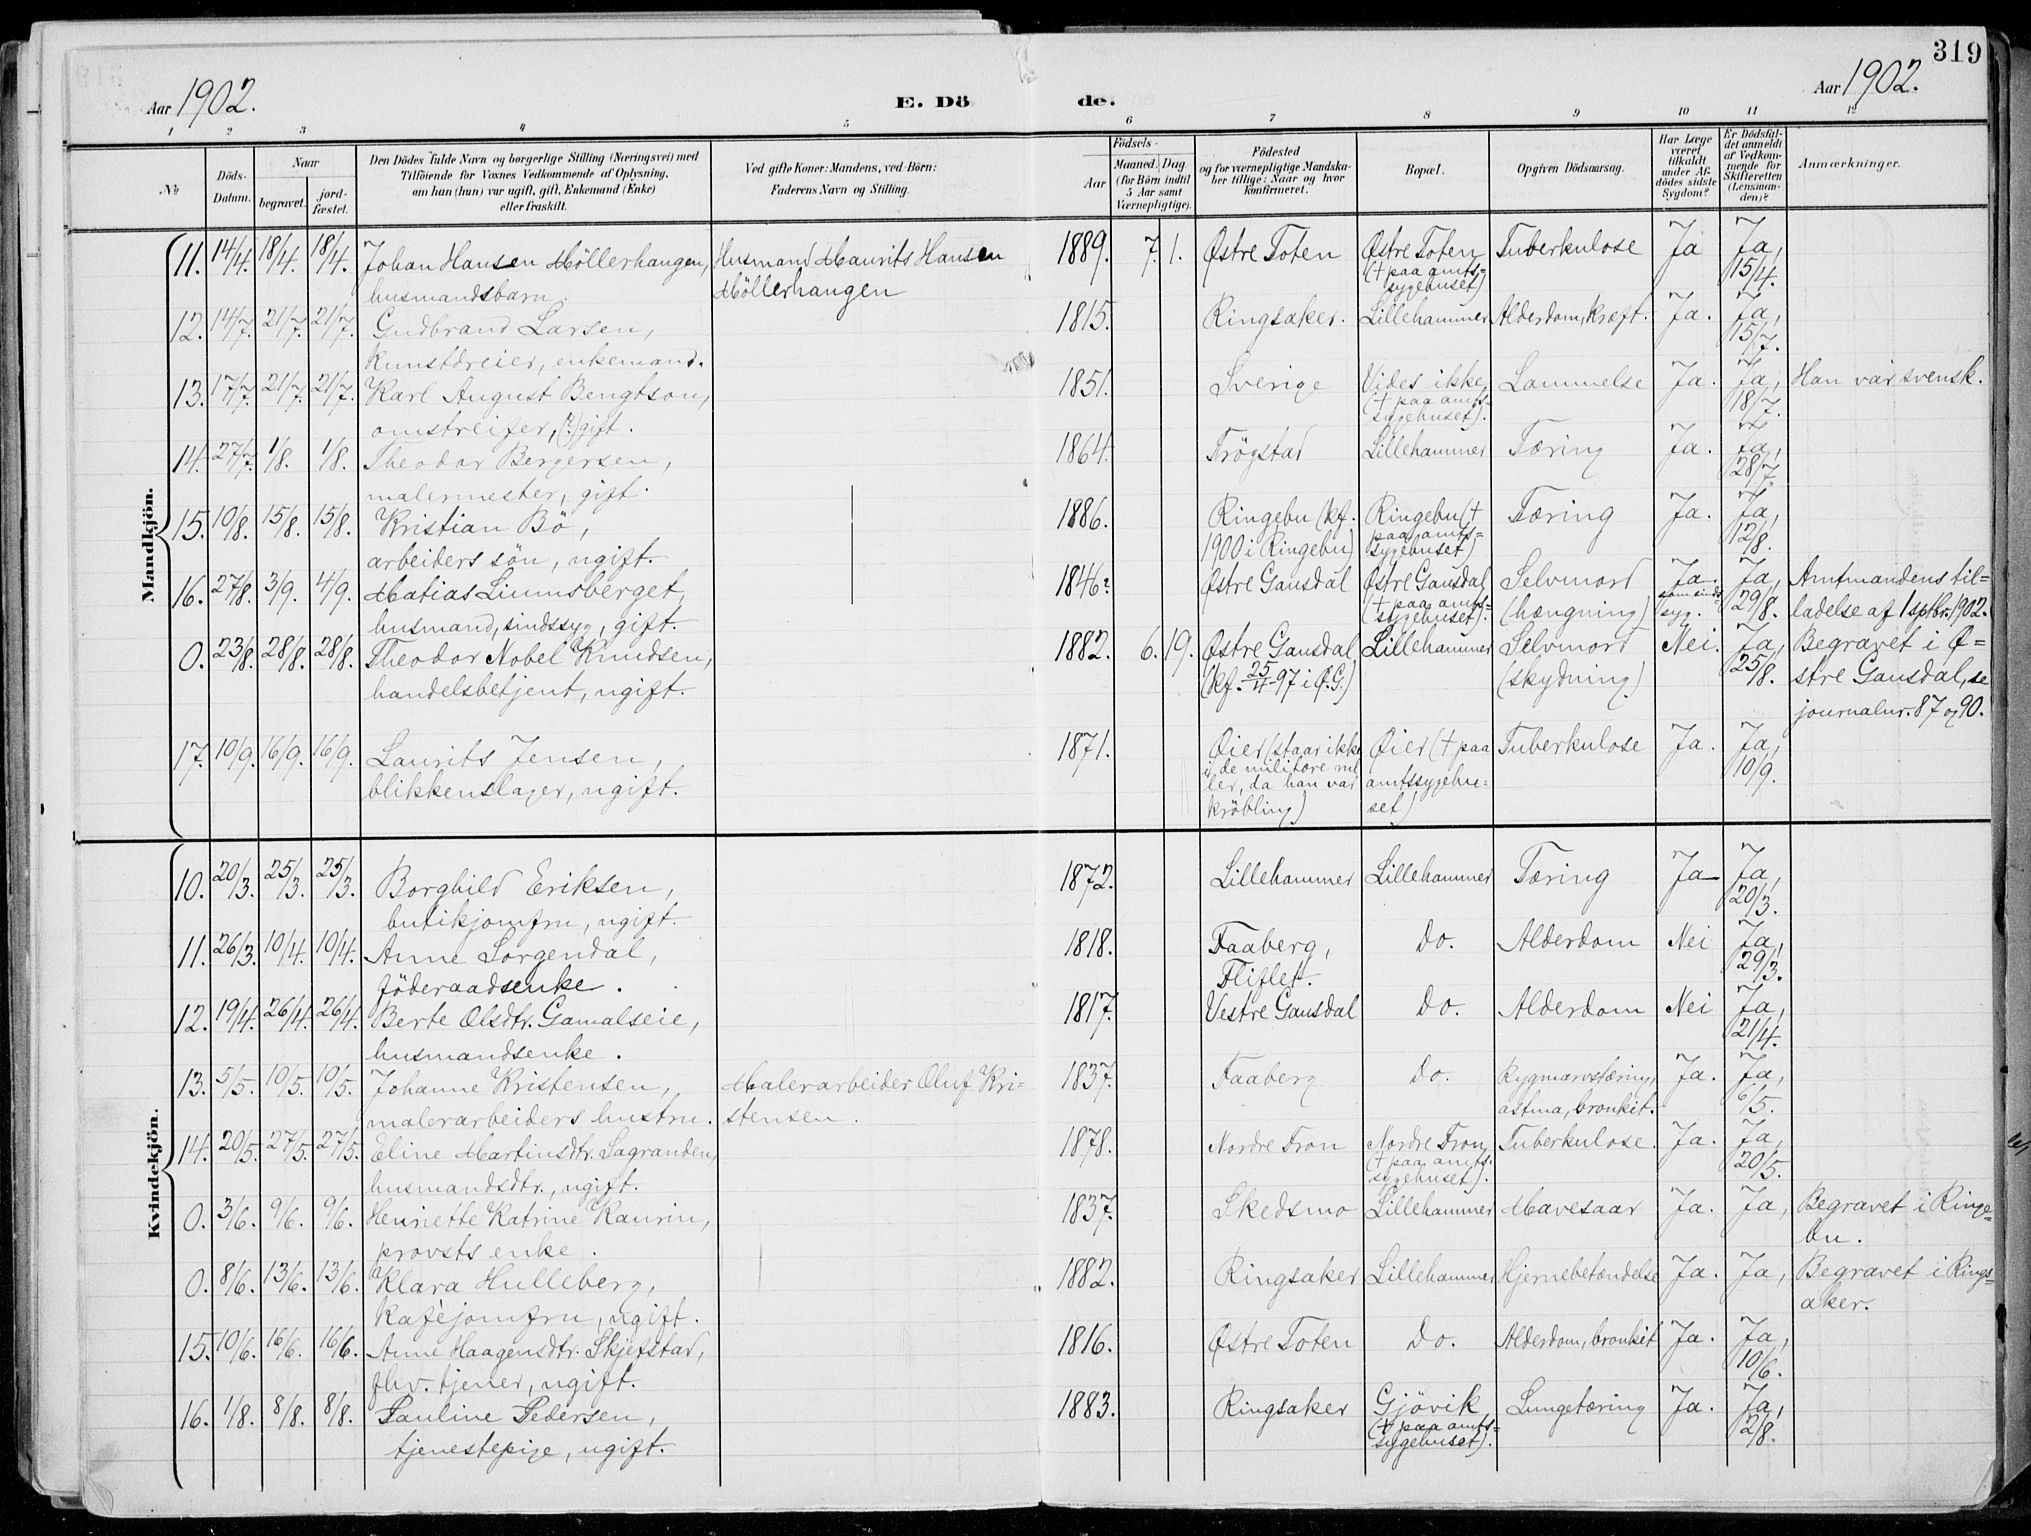 319
Aar 1902. E. Dö de. Aar 1902.
1 2 3 4 5 6 7 8 9 10 11 12
№ Döds-Datum. Naar begravet. jord-fæstet. Den Dödes fulde Navn og borgerlige Stilling (Næringsvei) med Tilföiende for Voxnes Vedkommende af Oplysning, om han (hun) var ugift, gift, Enkemand (Enke) eller fraskilt. Ved gifte Koner: Mandens, ved Börn: Faderens Navn og Stilling. Födsels- Aar Maaned. Dag. (for Börn indtil 5 Aar samt Værnepligtige). Födested og for værnepligtige Mandska-ber tillige: Naar og hvor konfirmeret. Bopæl. Opgiven Dödsaarsag. Har Læge været tilkaldt under Af-dödes sidste Sygdom? Er Dödsfal-det anmeldt af Vedkom-mende for Skifteretten (Lensman-den)? Anmærkninger.
Mandkjön.
11. 14/4. 18/4. 18/4. Johan Hansen Möllerhaugen, Husmand Maurits Hansen 1889. 7. 1. Østre Toten Østre Toten Tuberkulose Ja Ja,
husmandsbarn. Möllerhaugen (+ paa amts-sygehuset) 15/4.
12. 14/7. 21/7. 21/7. Gudbrand Larsen, 1815. Ringsaker. Lillehammer Alderdom, kræft. Ja. Ja,
kunstdreier, enkemand. 15/7.
13. 17/7. 21/7. 21/7. Karl August Bengtson, 1851. Sverige Vides ikke Lammelse Ja. Ja, Han var svensk.
omstreifer, (?) gift. (+ paa amts-sygehuset). 18/7.
14. 27/7. 1/8. 1/8. Theodor Bergersen, 1864. Trögstad Lillehammer Tæring Ja. Ja,
malermester, gift. 28/7.
15. 10/8. 15/8. 15/8. Kristian Bö, 1886. Ringebu (kf. Ringebu (+ Tæring Ja. Ja,
arbeiders sön, ugift. 1900 i Ringebu) paa amts-sygehuset) 12/8.
16. 27/8. 3/9. 4/9. Matias Liumsberget, 1846? Østre Gausdal Østre Gausdal Selvmord Ja. Ja, Amtmandens til-
husmand, sindssyg, gift. (+ paa amts-sygehuset). (hængning) som sinds-syg. 29/8. ladelse af 1 sptbr. 1902.
0. 23/8. 28/8. 28/8. Theodor Nobel Knudsen, 1882. 6. 19. Østre Gausdal Lillehammer Selvmord Nei. Ja, Begravet i Ø-
handelsbetjent, ugift. (kf. 25/4 97 i Ø.G.) (skydning) 25/8. stre Gausdal, se
journalnr. 87 og 90.
17. 10/9. 16/9. 16/9. Laurits Jensen, 1871. Øier (staar ikke Øier (+ paa Tuberkulose Ja. Ja,
blikkenslager, ugift. i de militære rul ler, da han var amtssygehu- 10/9.
kröbling) set)
Kvindekjön.
10. 20/3. 25/3. 25/3. Borghild Eriksen, 1872. Lillehammer Lillehammer Tæring Ja Ja,
butikjomfru, ugift. 20/3.
11. 26/3. 10/4. 10/4. Anne Sorgendal, 1818. Faaberg, Do. Alderdom Nei Ja,
föderaadsenke. Fliflet. 29/3.
12. 19/4. 26/4. 26/4. Berte Olsdtr. Gamalseie, 1817. Vestre Gausdal Do. Alderdom Nei Ja,
husmandsenke. 21/4.
13. 5/5. 10/5. 10/5. Johanne Kristensen, Malerarbeider Oluf Kri- 1837. Faaberg Do. Rygmarvstæring, Ja. Ja,
malerarbeiders hustru. stensen. astma, bronkit. 6/5.
14. 20/5. 27/5. 27/5. Eline Martinsdtr. Sagranden, 1878. Nordre Fron Nordre Fron Tuberkulose. Ja. Ja,
husmandsdtr., ugift. (+ paa amts-sygehuset). 20/5.
0. 3/6. 9/6. 9/6. Henriette Katrine Kaurin, 1837. Skedsmo Lillehammer Mavesaar Ja. Ja, Begravet i Ringe-
provsts enke. bu.
0. 8/6. 13/6. 13/6. Klara Hulleberg, 1882. Ringsaker Lillehammer Hjernebetændelse Ja. Ja, Begravet i Rings-
kaféjomfru, ugift. aker.
15. 10/6. 16/6. 16/6. Anne Haagensdtr. Skjefstad, 1816. Østre Toten Do. Alderdom, bronkit Ja. Ja,
fhv. tjener, ugift. 10/6.
16. 1/8. 8/8. 8/8. Pauline Pedersen, 1883. Ringsaker Gjövik Lungetæring Ja. Ja,
tjenestepige, ugift. (+ paa amts-sygehuset). 2/8.